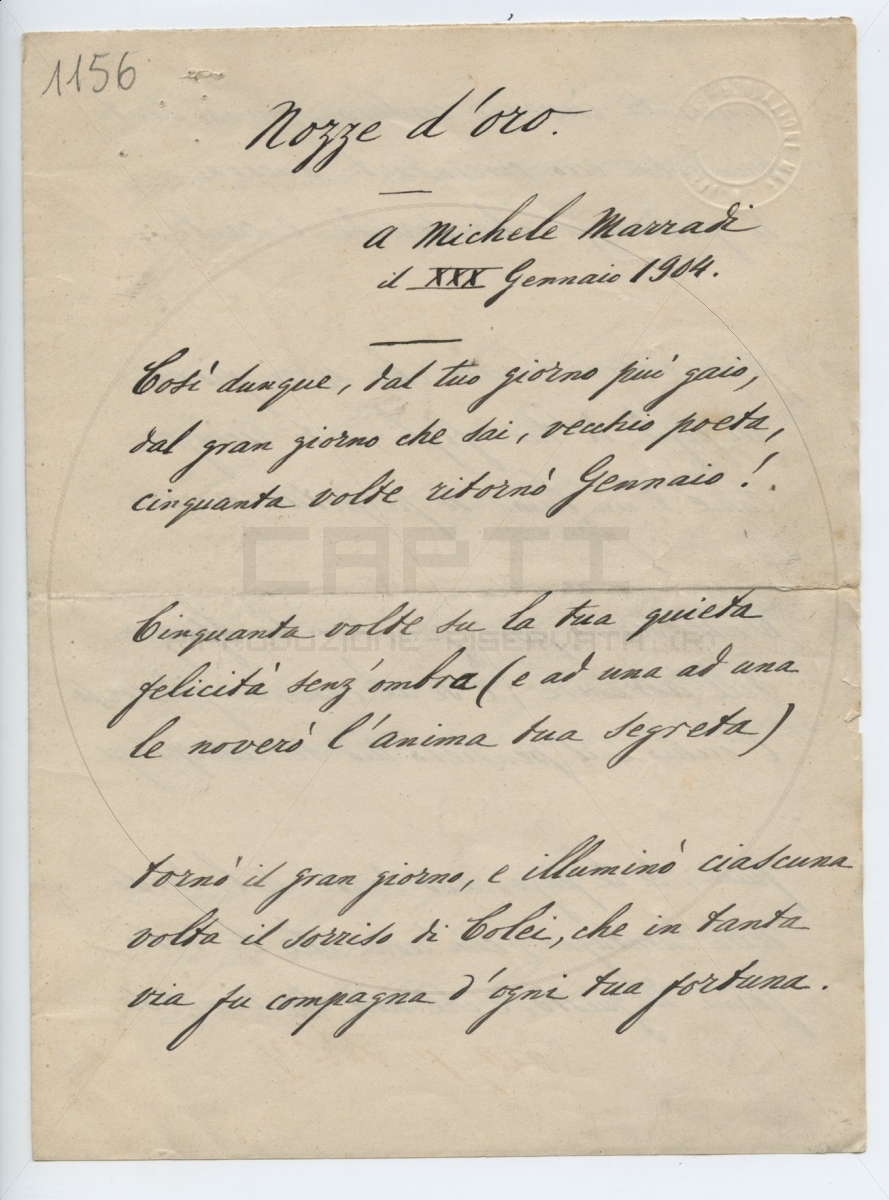 1156
Nozze d'oro.
A Michele Marradi
il XXX Gennaio 1904.
Così dunque, dal tuo giorno più gaio,
dal gran giorno che sai, vecchio poeta,
cinquanta volte ritornò Gennaio!
Cinquanta volte su la tua quieta
felicità senz'ombra (e ad una ad una
le noverò l'anima tua segreta)
tornò il gran giorno, e illuminò ciascuna
volta il sorriso di Colei, che in tanta
via fu compagna d'ogni tua fortuna.
CAPTI
RIPRODUZIONE RISERVATA